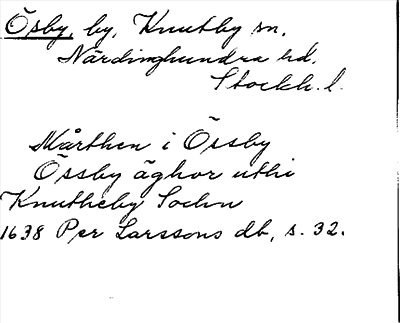 Ösby, by, Knutby sn,
Närdinghundra hd,
Stockh. l.
Mårthen i Össby
Össby äghor uthi
Knutheby Sochn
1638 Per Larssons db, s. 32.